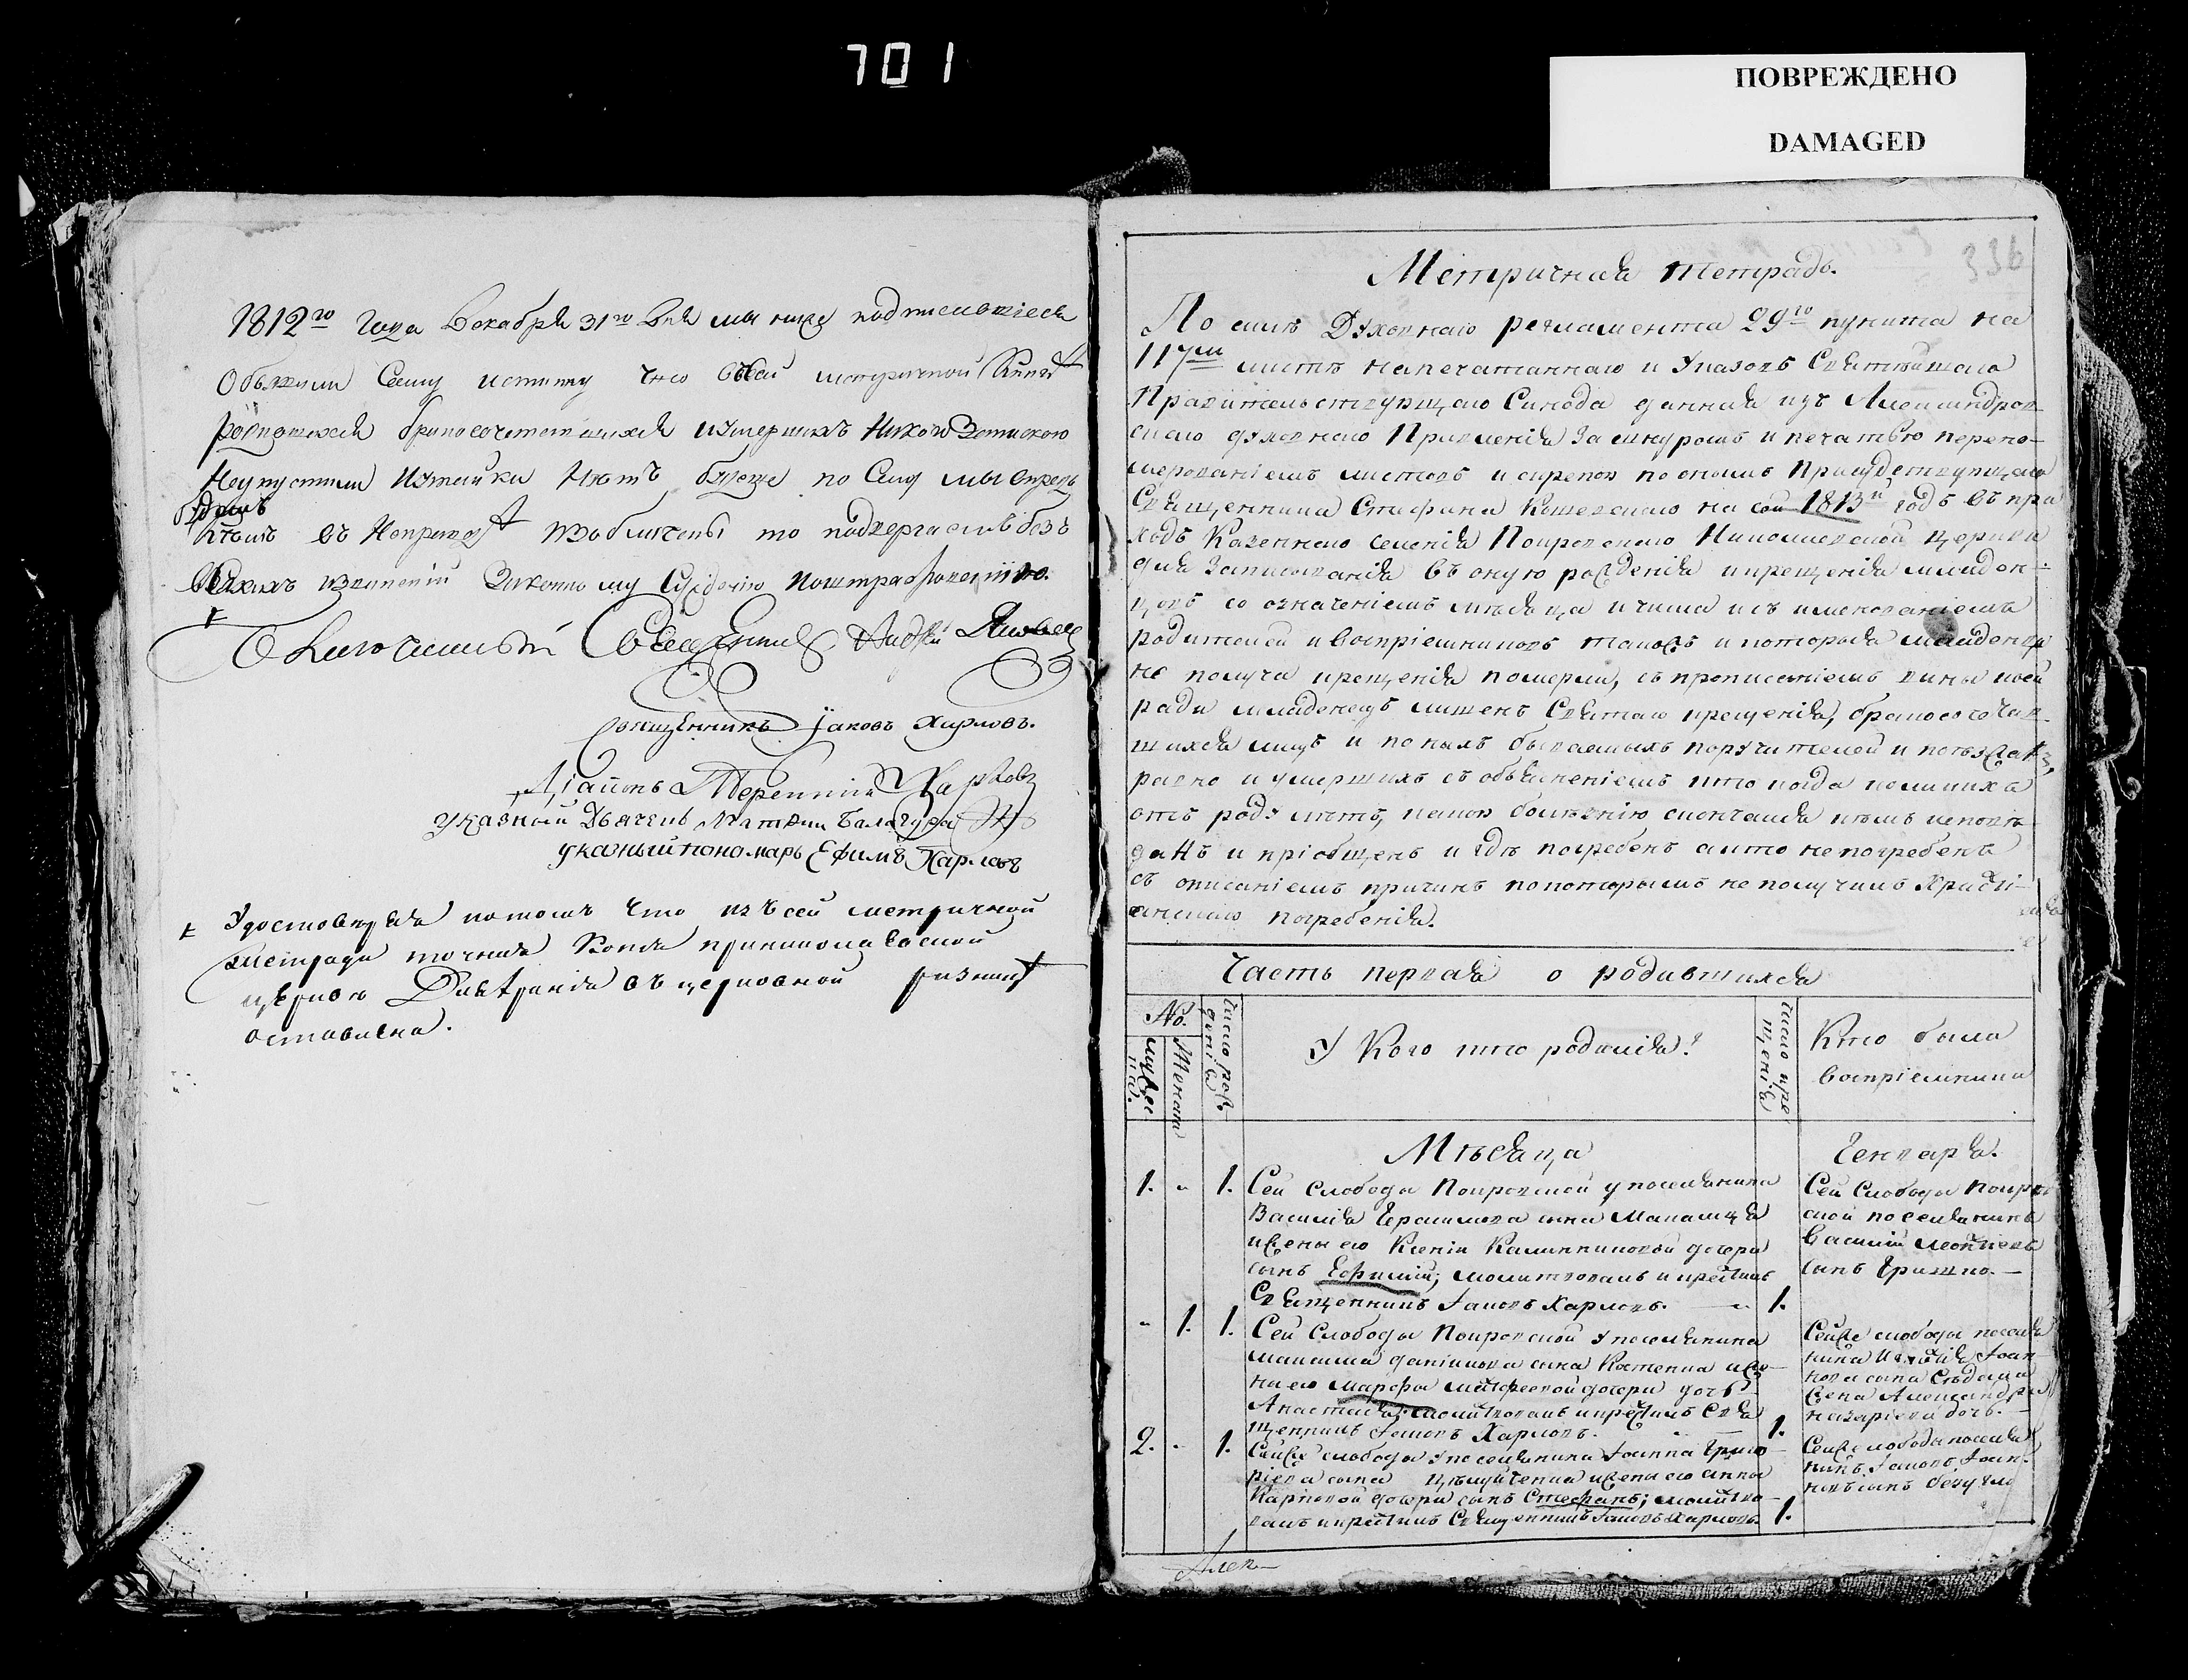 701
ПОВРЕЖДЕНО
DAMAGED
1812го года Декабря 31го дня мы ниже подписавшіеся
Объявили самую истинну что въ сей метрической книгѣ
рождшихся бракосочетавшихся и умершихъ никого
неупустили и утайки нѣтъ буде же по сему мы впредь
будемъ
кѣмъ въ неправдѣ изобличены то подвергаемъ себя безъ
всякихъ извиненій законному сужденію и оштрафованію.
Священникъ Іаковъ Харловъ.
Діаконъ Терентій Харловъ
указный Дьячекъ Балагура
указный пономарь Ефимъ Харловъ
Удостовѣряя потомъ что изъ сей метричной
тетради точная копія
церкви въ церковной ризницѣ
оставлена.
336
Метричная тетрадь.
По силѣ Духовнаго регламента 29го пункта на
117мъ листѣ напечатаннаго и Указовъ Святѣйшаго
Правительствующаго Синода данная изъ Александров-
скаго духовнаго Правленія за шнуромъ и печатью перено-
мерованіемъ листовъ и скрепою по онымъ Присудствующаго
Священника Стефана на сей 1813й годъ въ при
ходъ Казеннаго селенія Покровскаго Николаевской церкви
для записыванія въ оную рожденія и крещенія младен-
цовъ со означеніемъ мѣсяца и числа и съ именованіемъ
родителей и воспріемниковъ такожъ и которыя младенцы
не получа крещенія померли, съ прописаніемъ вины коей
ради младенецъ лишенъ Святаго крещенія, бракосочетав-
шихся лицъ и по нихъ бываемыхъ поручителей и
равно и умершихъ съ объясненіемъ кто когда коликихъ
отъ роду лѣтъ, какою болѣзнію скончался кѣмъ исповѣ-
данъ и пріобщенъ и гдѣ погребенъ а кто не погребенъ
съ описаніемъ причинъ по которымъ не получилъ Христі-
анскаго погребенія.
Часть первая о родившихся
No.
мужеска.
Женска
Число рож-
денія
У Кого кто родился?
Число кре
щенія
Кто были
воспріемники
Мѣсяца Генваря.
1. „ 1. Сей слободы Покровской у поселянина
Василія Герасимова сына
и жены его Ксеніи Калинниковой дочери
сынъ Ефимій; молитвовалъ и крестилъ
Священникъ Іаковъ Харловъ. — 1.
Сей Слободы Покров
ской поселянинъ
Василій Леонтіевъ
сынъ Гришко.—
„ 1. 1. Сей Слободы Покровской у поселянина
Максима Даніилова сына Костенка и же-
ны его Марфы Матфеевой дочери дочь
Анастасія; молитвовалъ и крестилъ Свя
щенникъ Іаковъ Харловъ. 1.
Сей же слободы поселя
нина Іоан
нова сына
жена Александра
Назаріева дочь.
2. „ 1. Сей же слободы у поселянина Іоанна Григо
ріева сына и жены его Анны
Карповой дочери сынъ Стефанъ; молитво
валъ и крестилъ Священникъ Іаковъ Харловъ. 1.
Сей же слободы поселя
нинъ Іаковъ Іоан-
новъ сынъ
Алек—